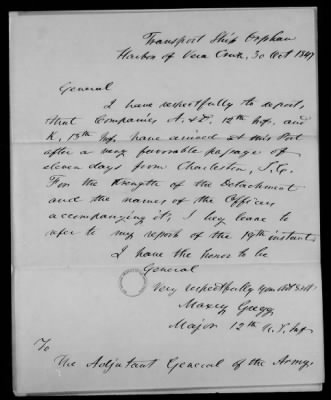 Transport Ship Orphan
Harbor of Vera Cruz, 30 Oct 1847
General
I have respectfully to report,
that Companies A. & E. 12th Inf. and
K, 13th Inf. have arrived at this Port
after a very favorable passage of
eleven days from Charleston, S. C.
For the strength of the Detachment
and the names of the Officers
accompanying it, I beg leave to
refer to my report of the 19th instant.
I have the honor to be
General
Very respectfully Your Obt Svt
Maxcy Gregg
Major 12th U. S. Inf
To
The Adjutant General of the Army